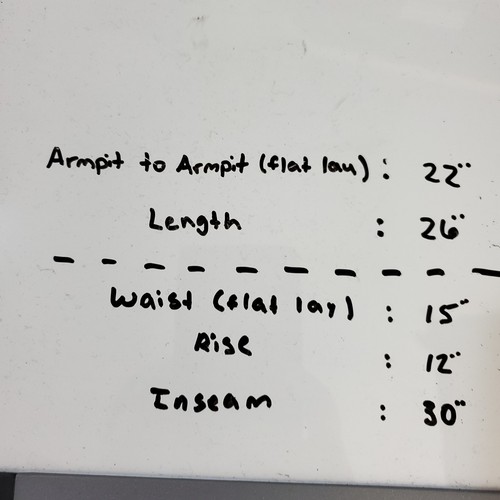 Armpit to Armpit (flat lay) : 22"
Length : 26"
Waist (flat lay) : 15"
Rise : 12"
Inseam : 30"